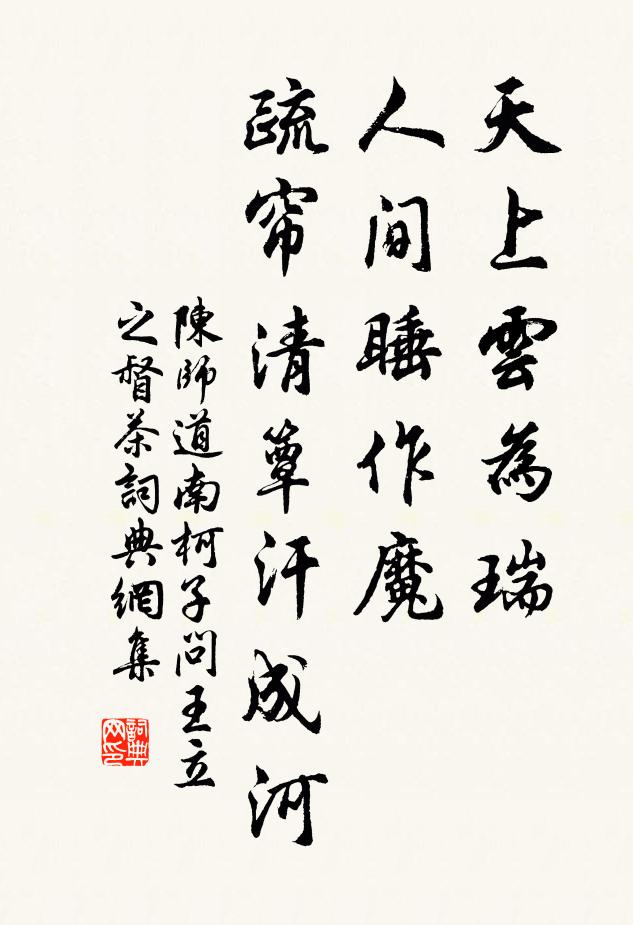 天上雲為瑞
人間睡作魔
疏帘清簟汗成河
陳師道南柯子問王立
之督茶詞典網集
詞典網印